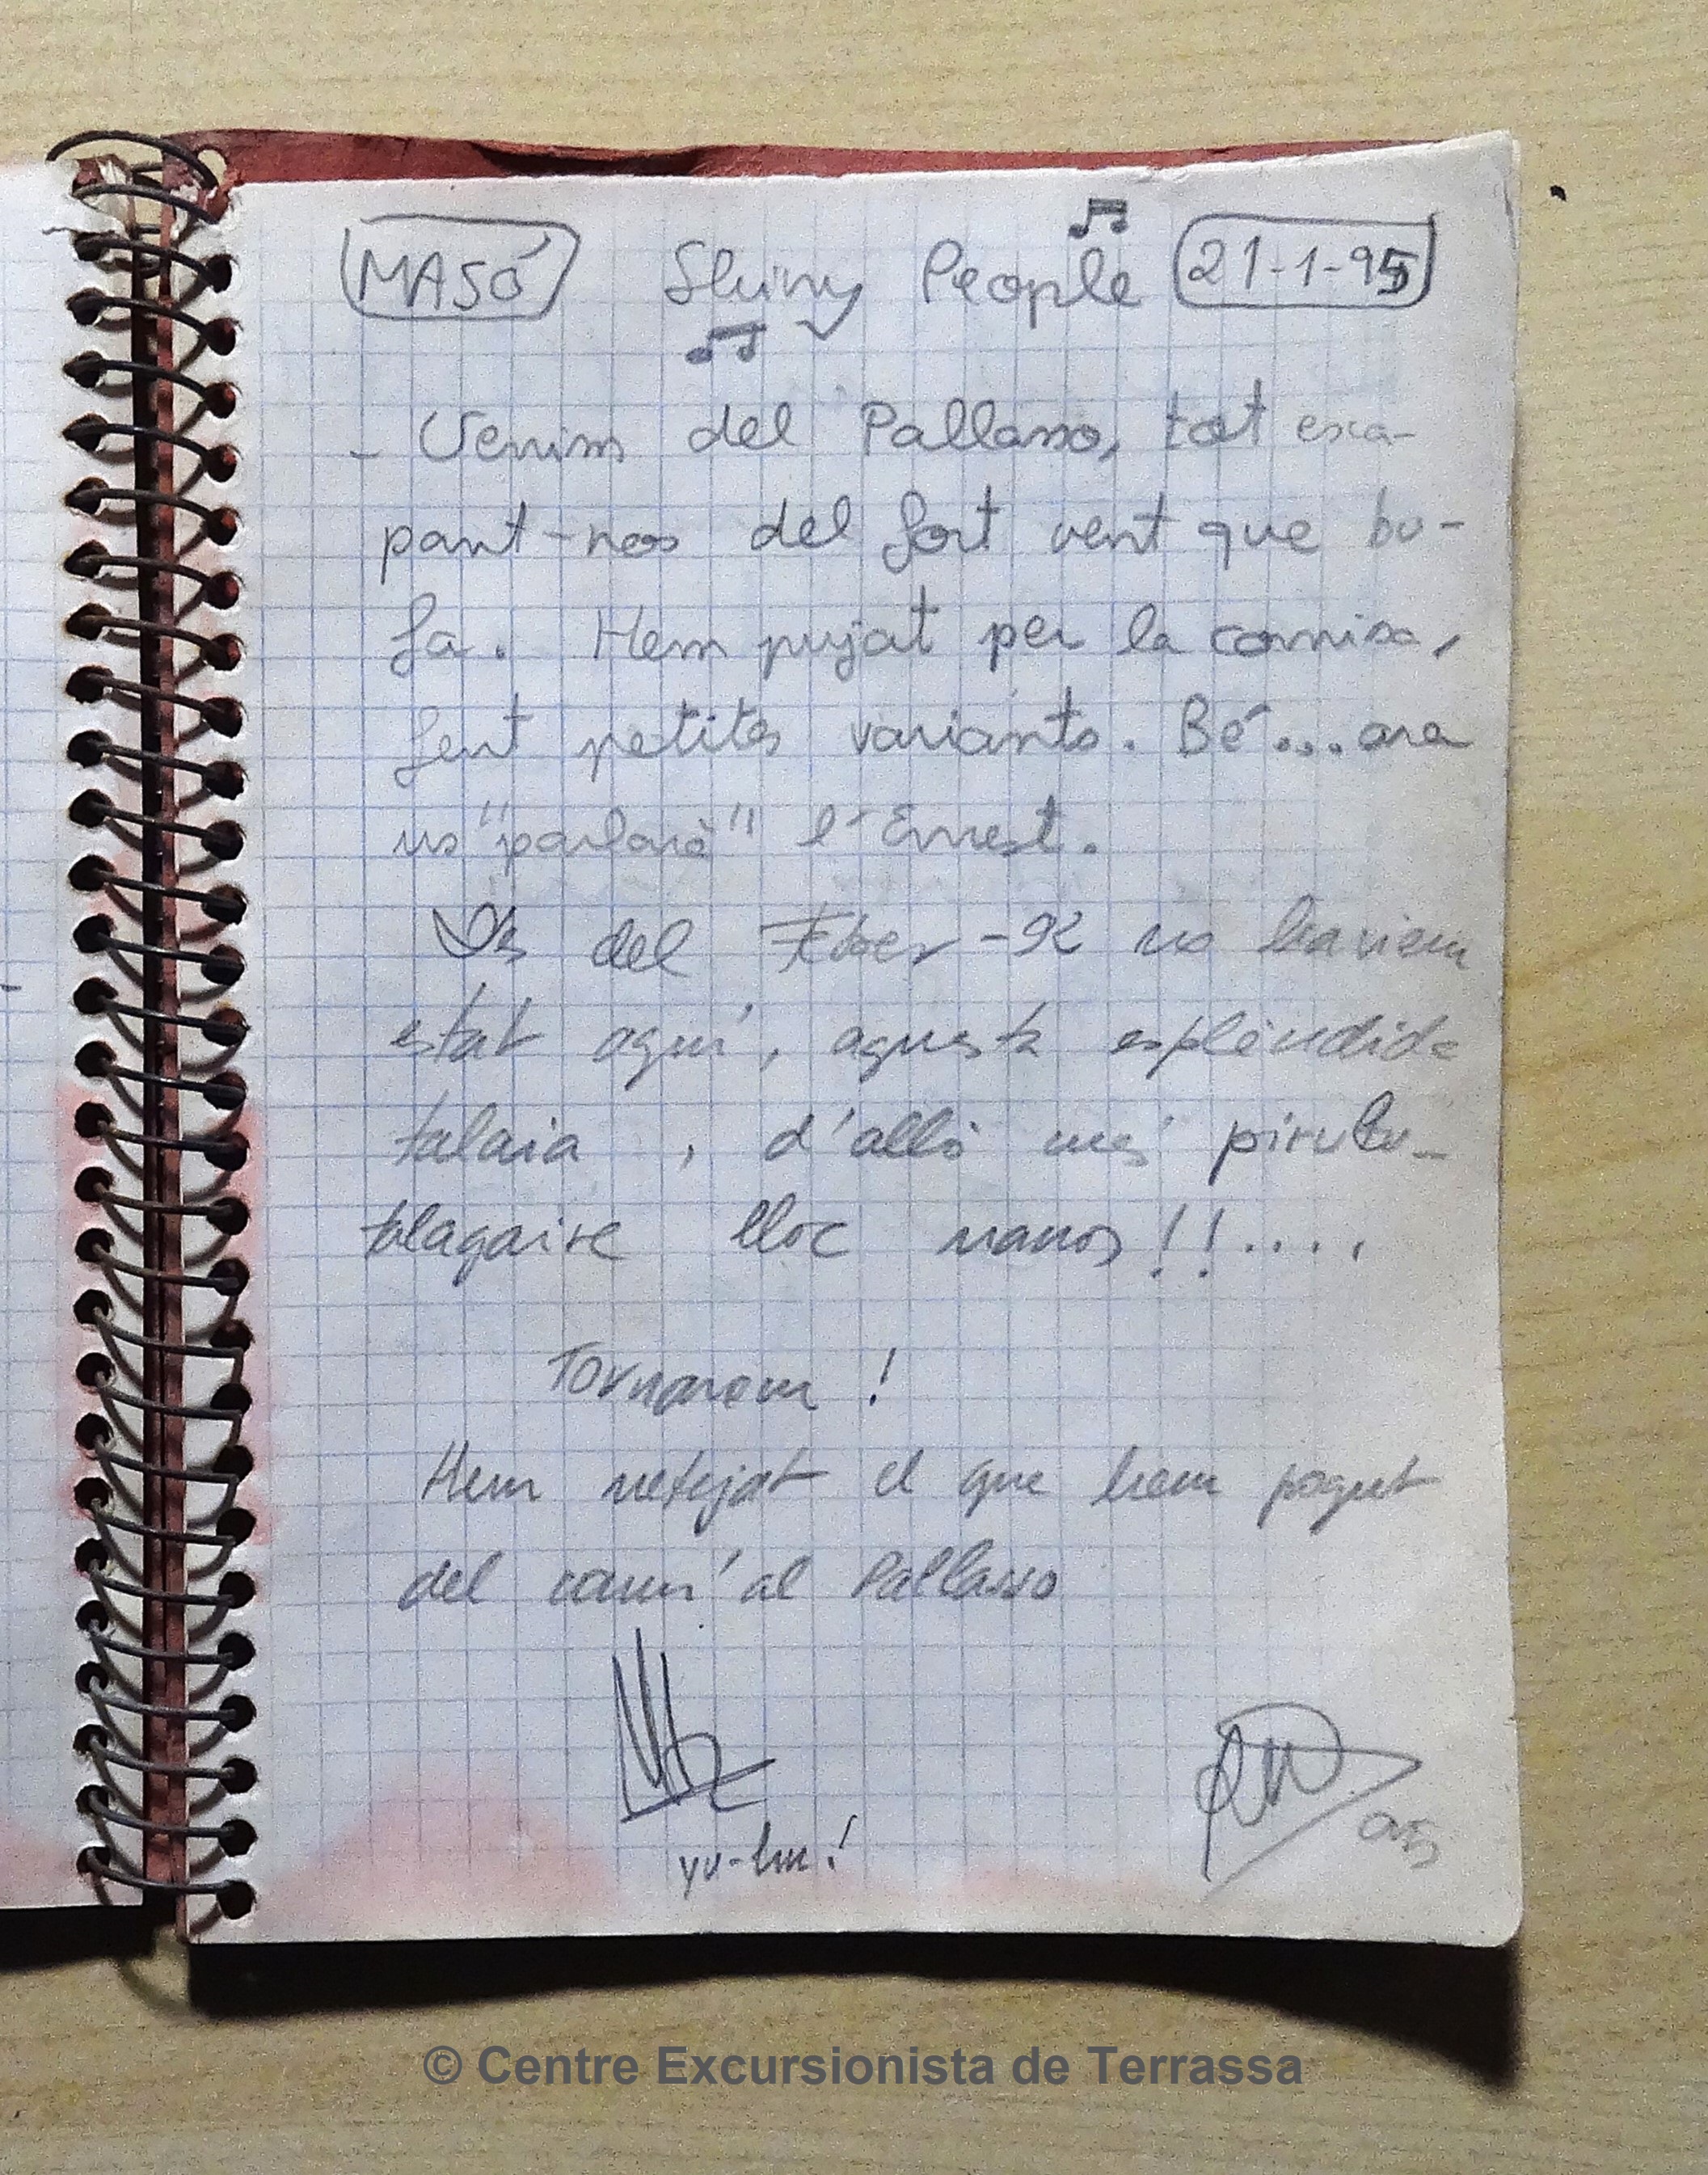 MASÓ Shiny People 21-1-95
- Venim del Pallasso, tot esca-
pant-nos del fort vent que bu-
fa. Hem pujat per la cornisa,
fent petites variants. Bé... ara
us "parlarà" l'Ernest.
Des del Febrer-92 no haviem
estat aquí, aquesta esplèndida
talaia, d'allò més pirulu-
talagaire lloc nanos!!....
Tornarem!
Hem netejat el que hem pogut
del camí al Pallasso
yu-hu!
95
© Centre Excursionista de Terrassa